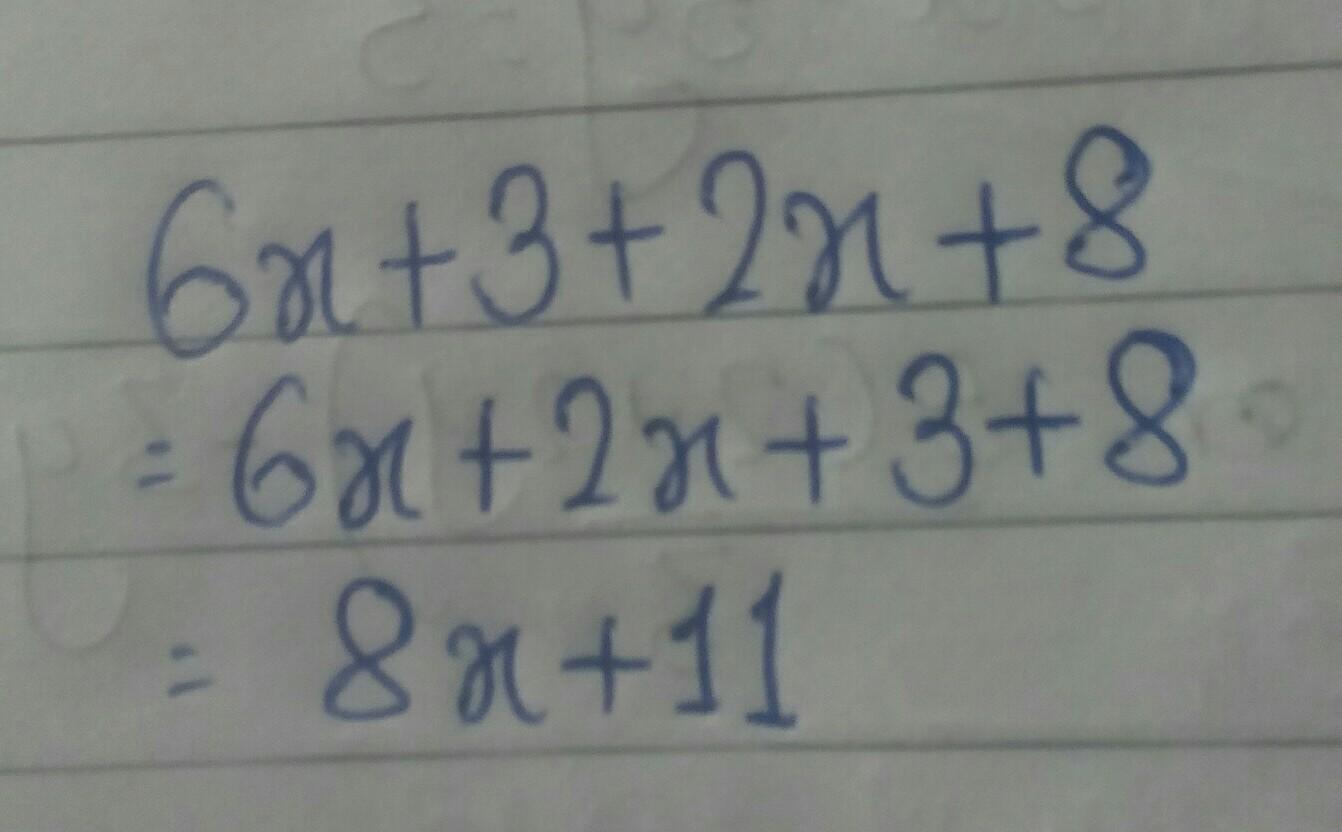 6x+3+2x+8
= 6x+2x+3+8
= 8x+11